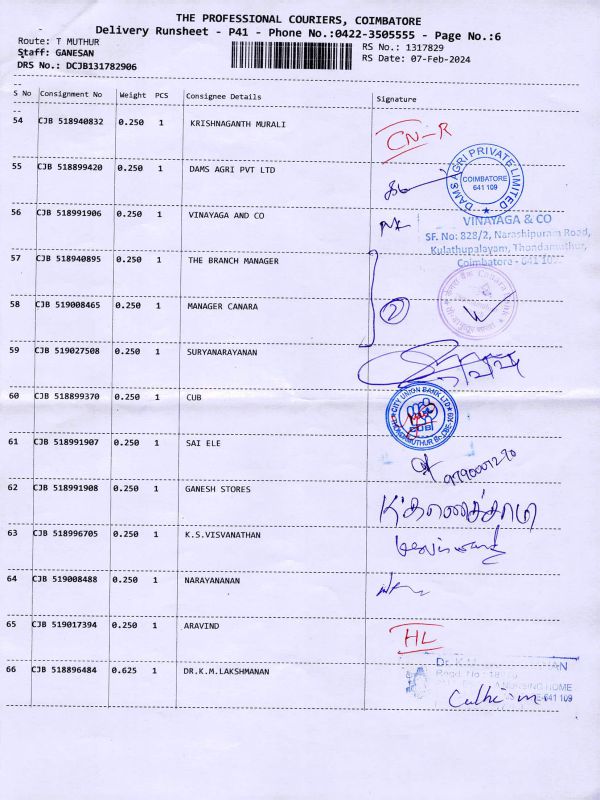 THE PROFESSIONAL COURIERS, COIMBATORE
Delivery Runsheet - P41 - Phone No.:0422-3505555 - Page No.:6
Route: T MUTHUR
Staff: GANESAN
DRS No.: DCJB131782906
RS No.: 1317829
RS Date: 07-Feb-2024
S No Consignment No Weight PCS Consignee Details Signature
54 CJB 518940832 0.250 1 KRISHNAGANTH MURALI CN-R
55 CJB 518899420 0.250 1 DAMS AGRI PVT LTD
DAMS AGRI PRIVATE LIMITED
COIMBATORE
641 109
56 CJB 518991906 0.250 1 VINAYAGA AND CO
VINAYAGA & CO
SF. No: 828/2, Narashipuram Road,
Kulathupalayam, Thondamuthur,
Coimbatore - 641
57 CJB 518940895 0.250 1 THE BRANCH MANAGER
58 CJB 519008465 0.250 1 MANAGER CANARA 2
Canara
59 CJB 519027508 0.250 1 SURYANARAYANAN
60 CJB 518899370 0.250 1 CUB
CITY UNION BANK LTD
CUB
THONDAMUTHUR
61 CJB 518991907 0.250 1 SAI ELE
62 CJB 518991908 0.250 1 GANESH STORES
63 CJB 518996705 0.250 1 K.S.VISVANATHAN
64 CJB 519008488 0.250 1 NARAYANANAN
65 CJB 519017394 0.250 1 ARAVIND HL
66 CJB 518896484 0.625 1 DR.K.M.LAKSHMANAN
Dr. K
Regd. No
NURSING HOME
641 109